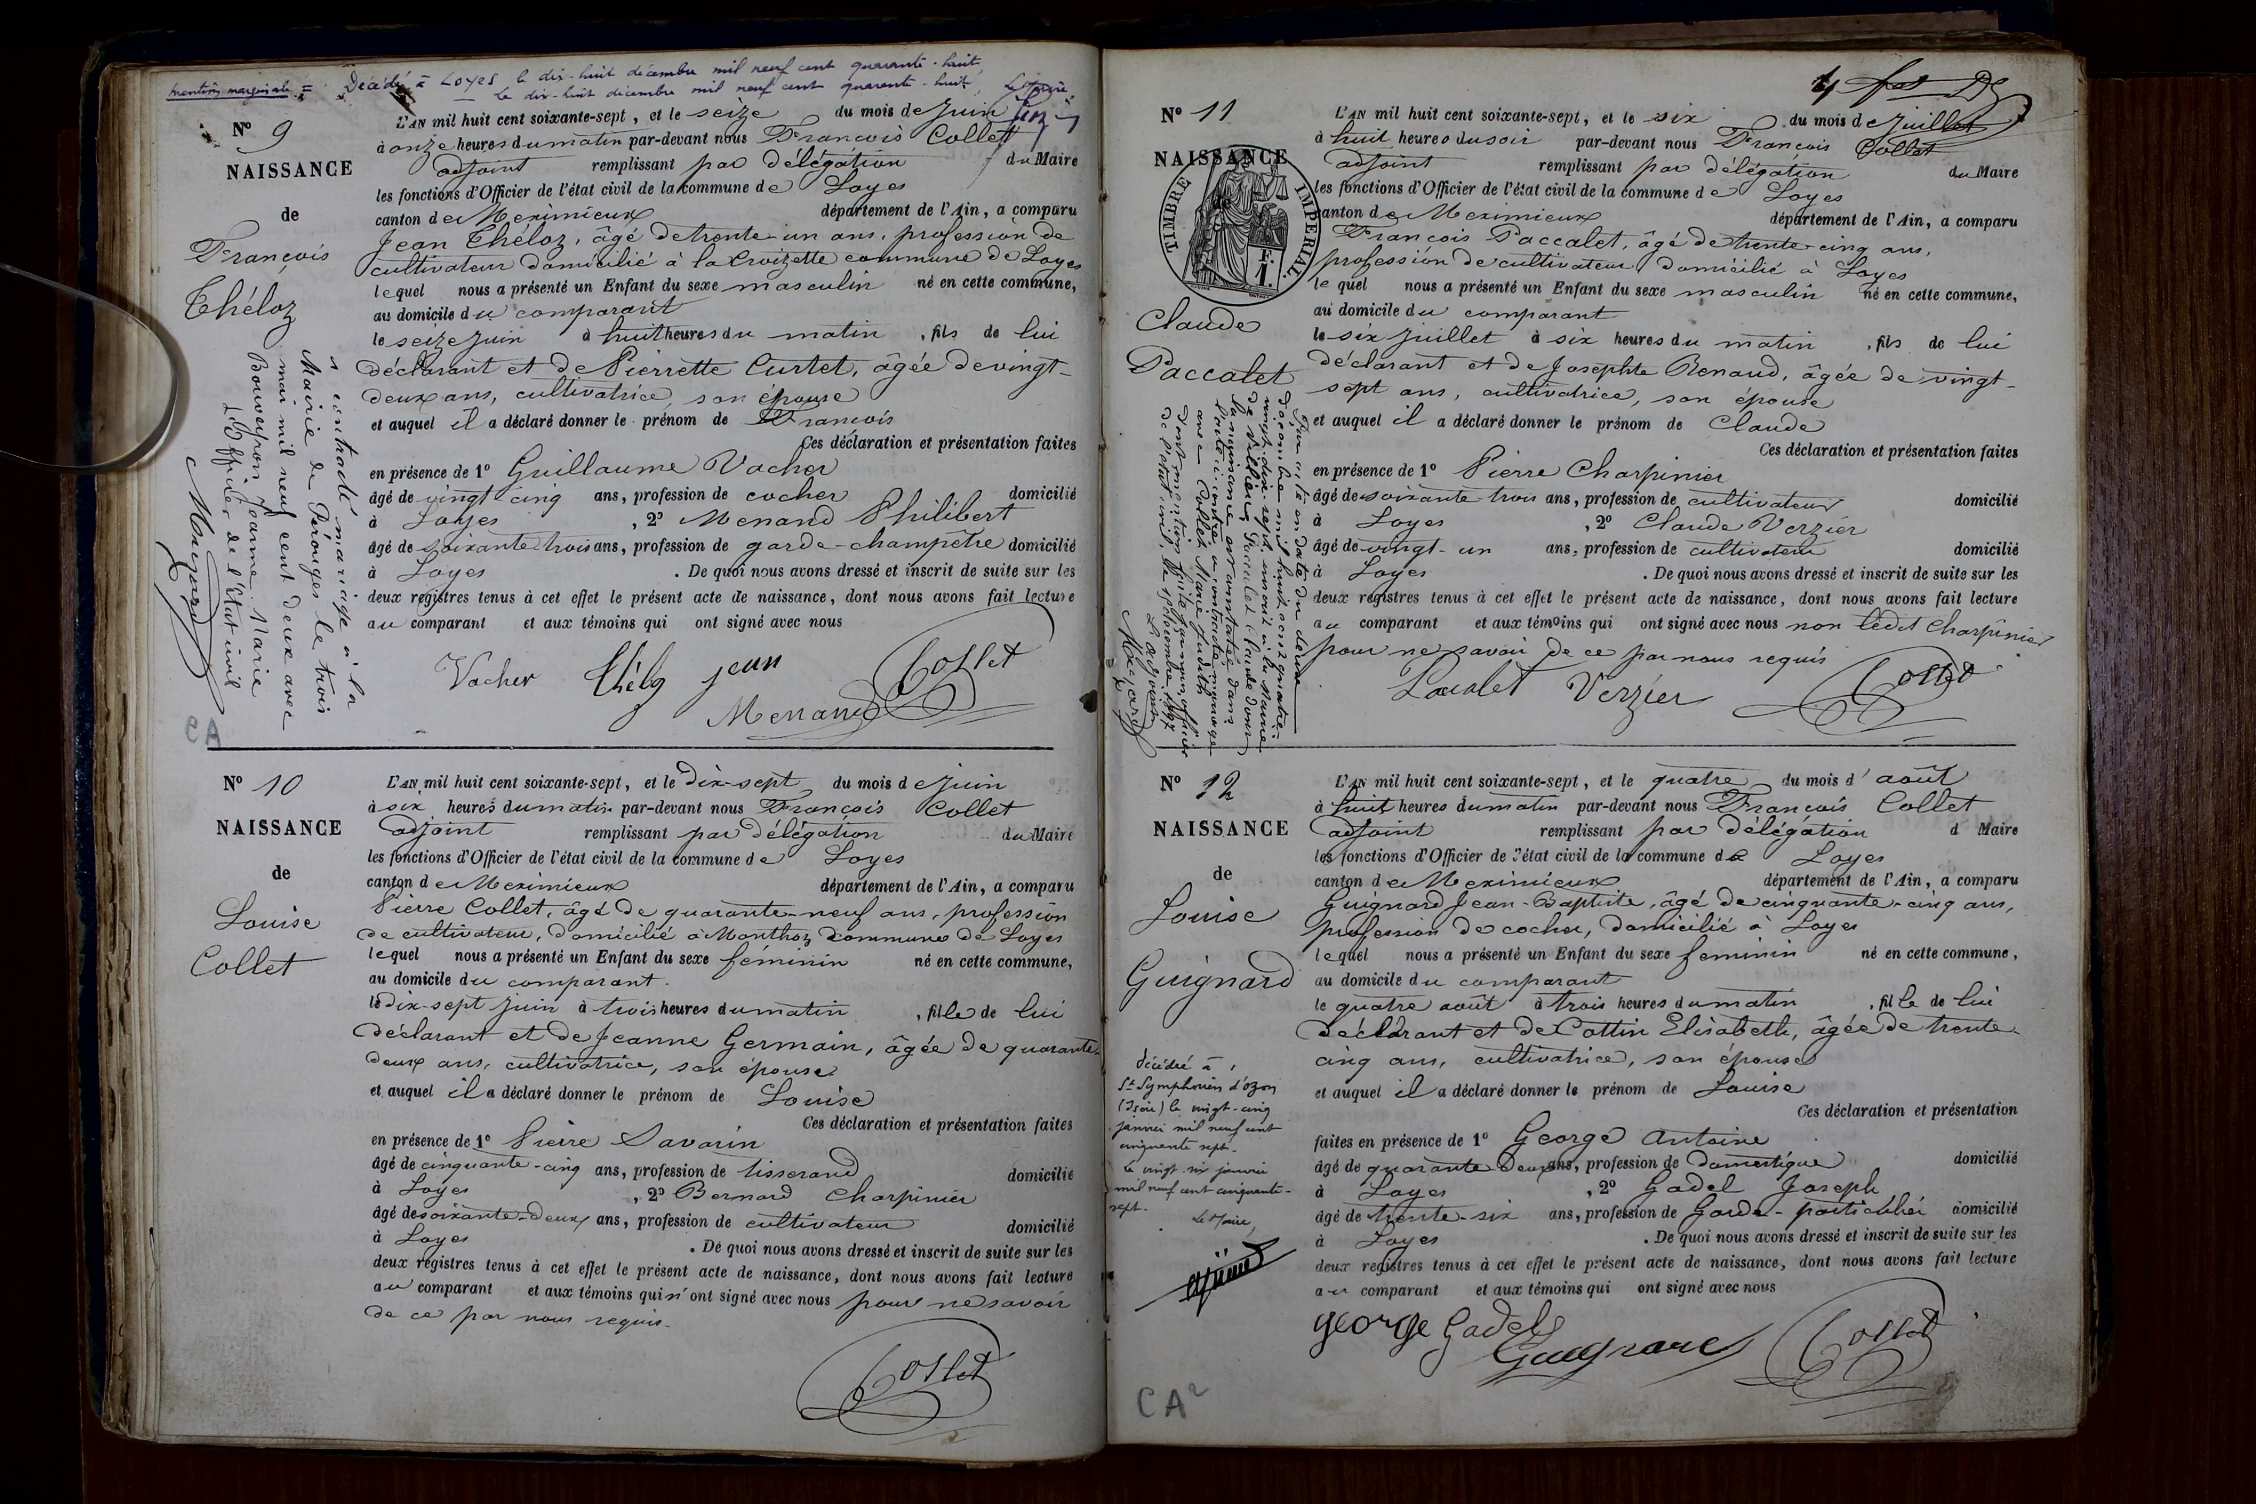 mention marginale = Décédé à Loyes le dix-huit décembre mil neuf cent quarante-huit
le dix-huit décembre mil neuf cent quarante-huit, Le Maire
Nº 9
NAISSANCE
de
François
Théloz
a contracté mariage à la
Mairie de Pérouges le trois
mai mil neuf cent deux avec
Bouveyron Jeanne Marie
L'Officier de l'état civil
L'AN mil huit cent soixante-sept, et le seize du mois de juin
à onze heures du matin par-devant nous François Collet
adjoint remplissant par délégation du Maire
les fonctions d'Officier de l'état civil de la commune de Loyes
canton de Meximieux département de l'Ain, a comparu
Jean Théloz, âgé de trente-un ans, profession de
cultivateur domicilié à la Croizette commune de Loyes
lequel nous a présenté un Enfant du sexe masculin né en cette commune,
au domicile du comparant
le seize juin à huit heures du matin, fils de lui
déclarant et de Pierrette Curtet, âgée de vingt-
deux ans, cultivatrice, son épouse
et auquel il a déclaré donner le prénom de François
Ces déclaration et présentation faites
en présence de 1º Guillaume Vacher
âgé de vingt cinq ans, profession de cocher domicilié
à Loyes, 2º Menand Philibert
âgé de soixante trois ans, profession de garde-champêtre domicilié
à Loyes. De quoi nous avons dressé et inscrit de suite sur les
deux registres tenus à cet effet le présent acte de naissance, dont nous avons fait lecture
au comparant et aux témoins qui ont signé avec nous
Vacher Théloz jean Collet
Menand
CA
Nº 10
NAISSANCE
de
Louise
Collet
L'AN mil huit cent soixante-sept, et le dix-sept du mois de juin
à six heures du matin par-devant nous François Collet
adjoint remplissant par délégation du Maire
les fonctions d'Officier de l'état civil de la commune de Loyes
canton de Meximieux département de l'Ain, a comparu
Pierre Collet, âgé de quarante-neuf ans, profession
de cultivateur, domicilié à Monthoz commune de Loyes
lequel nous a présenté un Enfant du sexe féminin né en cette commune,
au domicile du comparant.
le dix-sept juin à trois heures du matin, fille de lui
déclarant et de Jeanne Germain, âgée de quarante-
deux ans, cultivatrice, son épouse
et auquel il a déclaré donner le prénom de Louise
Ces déclaration et présentation faites
en présence de 1º Pierre Savarin
âgé de cinquante-cinq ans, profession de tisserand domicilié
à Loyes, 2º Bernard Charpinier
âgé de soixante-deux ans, profession de cultivateur domicilié
à Loyes. De quoi nous avons dressé et inscrit de suite sur les
deux registres tenus à cet effet le présent acte de naissance, dont nous avons fait lecture
au comparant et aux témoins qui n'ont signé avec nous pour ne savoir
de ce par nous requis.
Collet
Nº 11
NAISSANCE
TIMBRE IMPERIAL.
F.
1.
Claude
Paccalet
L'AN mil huit cent soixante-sept, et le six du mois de juillet
à huit heures du soir par-devant nous François Collet
adjoint remplissant par délégation du Maire
les fonctions d'Officier de l'état civil de la commune de Loyes
canton de Meximieux département de l'Ain, a comparu
François Paccalet, âgé de trente-cinq ans,
profession de cultivateur, domicilié à Loyes
lequel nous a présenté un Enfant du sexe masculin né en cette commune,
au domicile du comparant
le six juillet à six heures du matin, fils de lui
déclarant et de Josephte Renaud, âgée de vingt-
sept ans, cultivatrice, son épouse
et auquel il a déclaré donner le prénom de Claude
Ces déclaration et présentation faites
en présence de 1º Pierre Charpinier
âgé de soixante trois ans, profession de cultivateur domicilié
à Loyes, 2º Claude Verzier
âgé de vingt-un ans, profession de cultivateur domicilié
à Loyes. De quoi nous avons dressé et inscrit de suite sur les
deux registres tenus à cet effet le présent acte de naissance, dont nous avons fait lecture
au comparant et aux témoins qui ont signé avec nous non ledit Charpinier
pour ne savoir de ce par nous requis
Pacalet Verzier Collet
Nº 12
NAISSANCE
de
Louise
Guignard
Décédée à
St Symphorien d'ozon
(Isère) le vingt-cinq
janvier mil neuf cent
cinquante sept.
le vingt-six janvier
mil neuf cent cinquante-
sept.
Le Maire,
L'AN mil huit cent soixante-sept, et le quatre du mois d'août
à huit heures du matin par-devant nous François Collet
adjoint remplissant par délégation d Maire
les fonctions d'Officier de l'état civil de la commune de Loyes
canton de Meximieux département de l'Ain, a comparu
Guignard Jean-Baptiste, âgé de cinquante-cinq ans,
profession de cocher, domicilié à Loyes
lequel nous a présenté un Enfant du sexe féminin né en cette commune,
au domicile du comparant
le quatre août à trois heures du matin, fille de lui
déclarant et de Cottin Elisabeth, âgée de trente-
cinq ans, cultivatrice, son épouse
et auquel il a déclaré donner le prénom de Louise
Ces déclaration et présentation
faites en présence de 1º George Antoine
âgé de quarante deux ans, profession de domestique domicilié
à Loyes, 2º Gadel Joseph
âgé de trente-six ans, profession de Garde-particulier domicilié
à Loyes. De quoi nous avons dressé et inscrit de suite sur les
deux registres tenus à cet effet le présent acte de naissance, dont nous avons fait lecture
au comparant et aux témoins qui ont signé avec nous
george Gadel Collet
Guignard
CA²